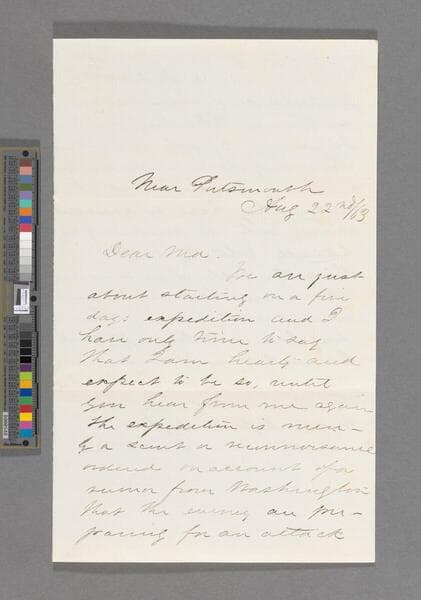 Near Portsmouth
Aug 22nd/63
Dear Ma.
We are just
about starting on a five
days expedition and I
have only time to say
that I am hearty and
expect to be so, until
you hear from me again
The expedition is mere-
ly a scout or reconnoisance
ordered on account of a
rumor from Washington
that the enemy are pre-
paring for an attack